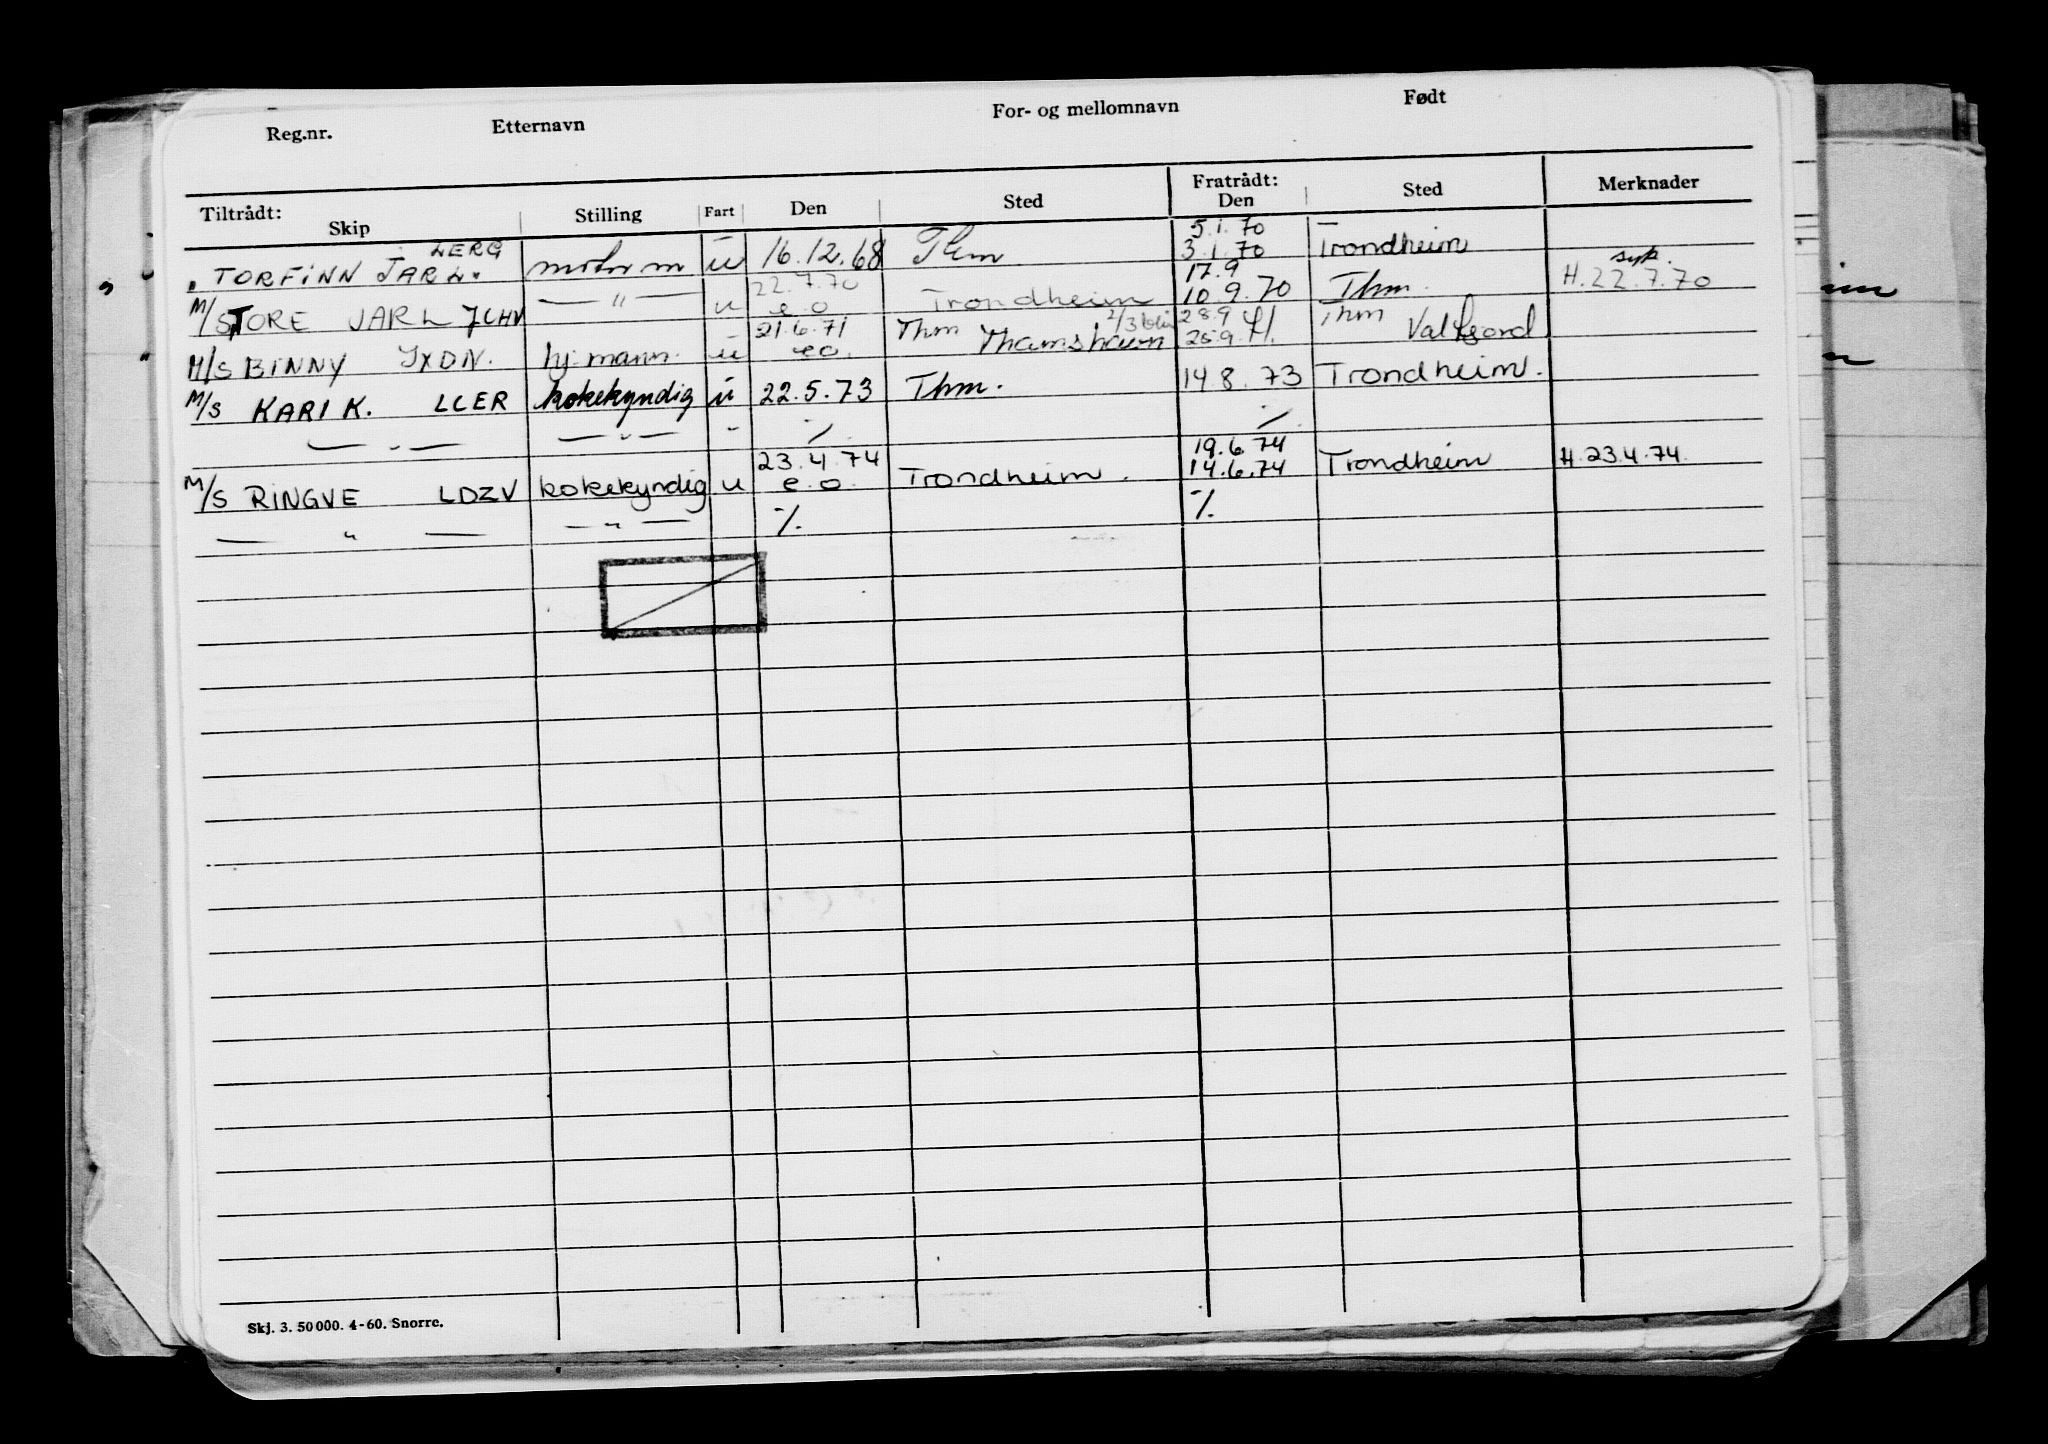 Reg.nr. Etternavn For- og mellomnavn Født
Tiltrådt: Fratrådt:
Skip Stilling Fart Den Sted Den Sted Merknader
5.1.70
" TORFINN JARL. LERG motorm u 16.12.68 Thm 3.1.70 Trondheim
22.7.70 17.9 syk.
M/S TORE JARL JCHV — " — u e.o Trondheim 10.9.70 Thm. H.22.7.70
21.6.71 Thm 28.9 Thm
M/S BINNY JXDN. hj.mann. u e.o. Thamshavn 25.9.71. Valkjord
M/S KARI K. LCER kokekyndig u 22.5.73 Thm. 14.8.73 Trondheim.
— " — — " — " ⁒ ⁒
23.4.74 19.6.74
M/S RINGVE LDZV kokekyndig u e.o. Trondheim. 14.6.74 Trondheim H.23.4.74.
— " — — " — ⁒ ⁒
Skj. 3. 50 000. 4-60. Snorre.